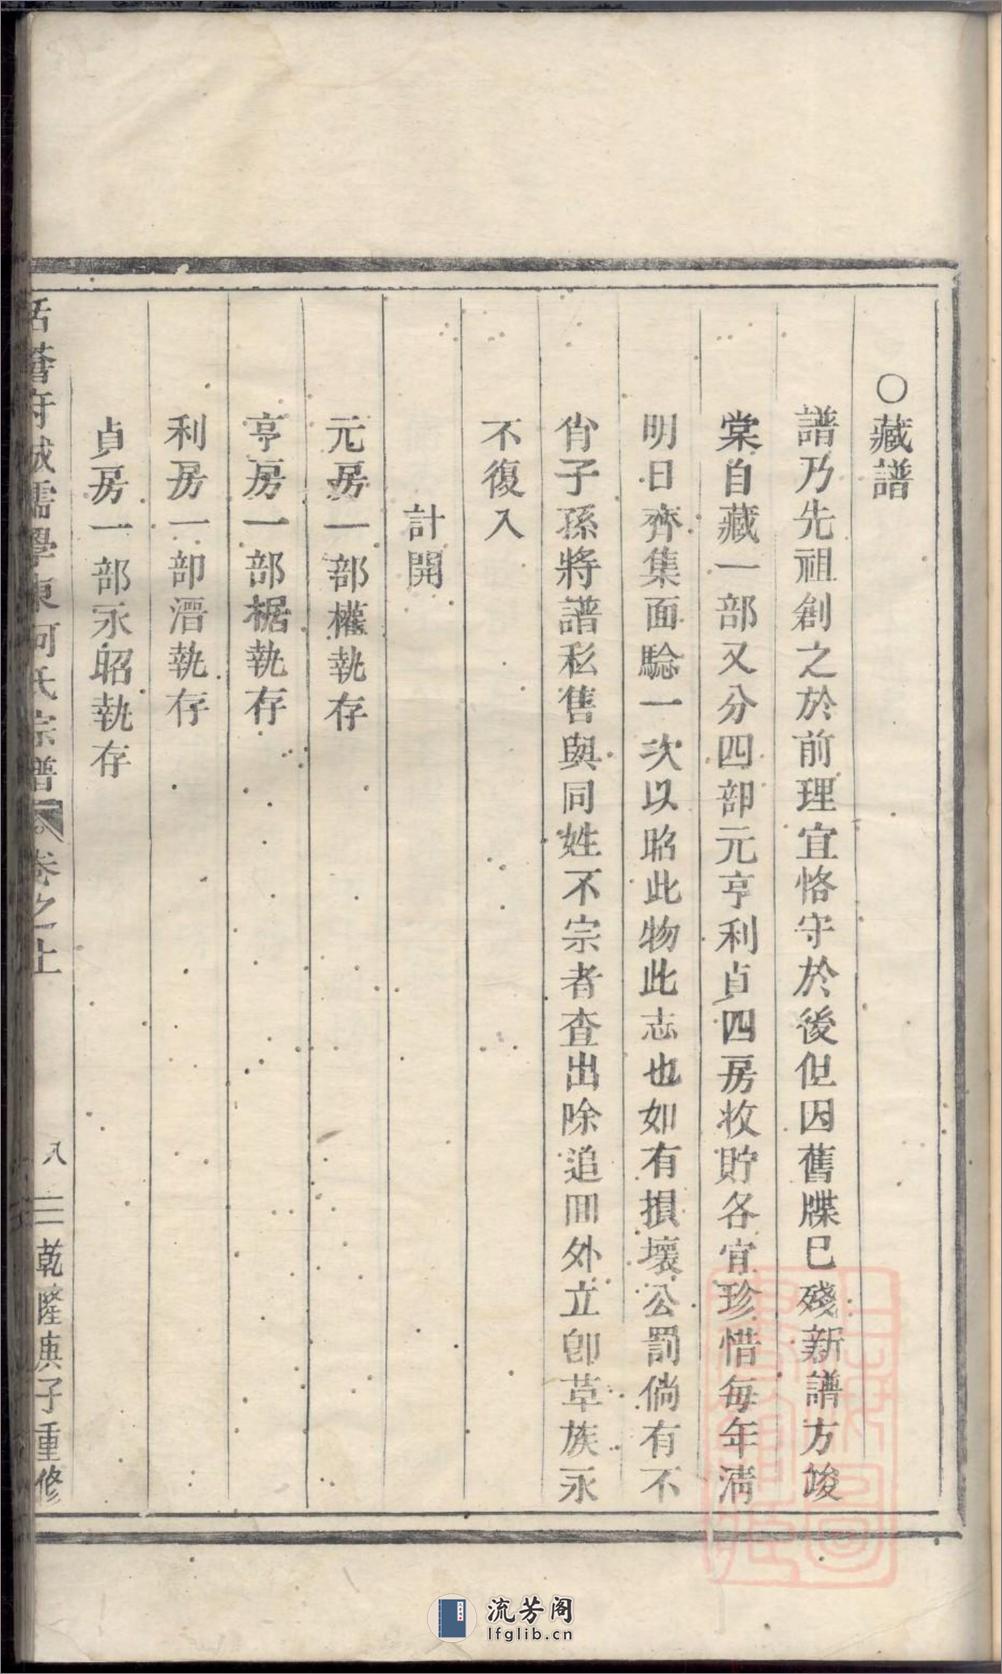 ○藏譜
譜乃先祖創之於前理宜恪守於後但因舊牒已殘新譜方竣
棠自藏一部又分四部元亨利貞四房收貯各宜珍惜每年淸
明日齊集面驗一次以昭此物此志也如有損壞公罰倘有不
肖子孫將譜私售與同姓不宗者查出除追囬外立卽革族永
不復入
計開
元房一部權執存
亨房一部椐執存
利房一部溍執存
貞房一部永昭執存
括蒼府城儒學東何氏宗譜 卷之上 八 乾隆庚子重修
流芳阁
lfglib.cn